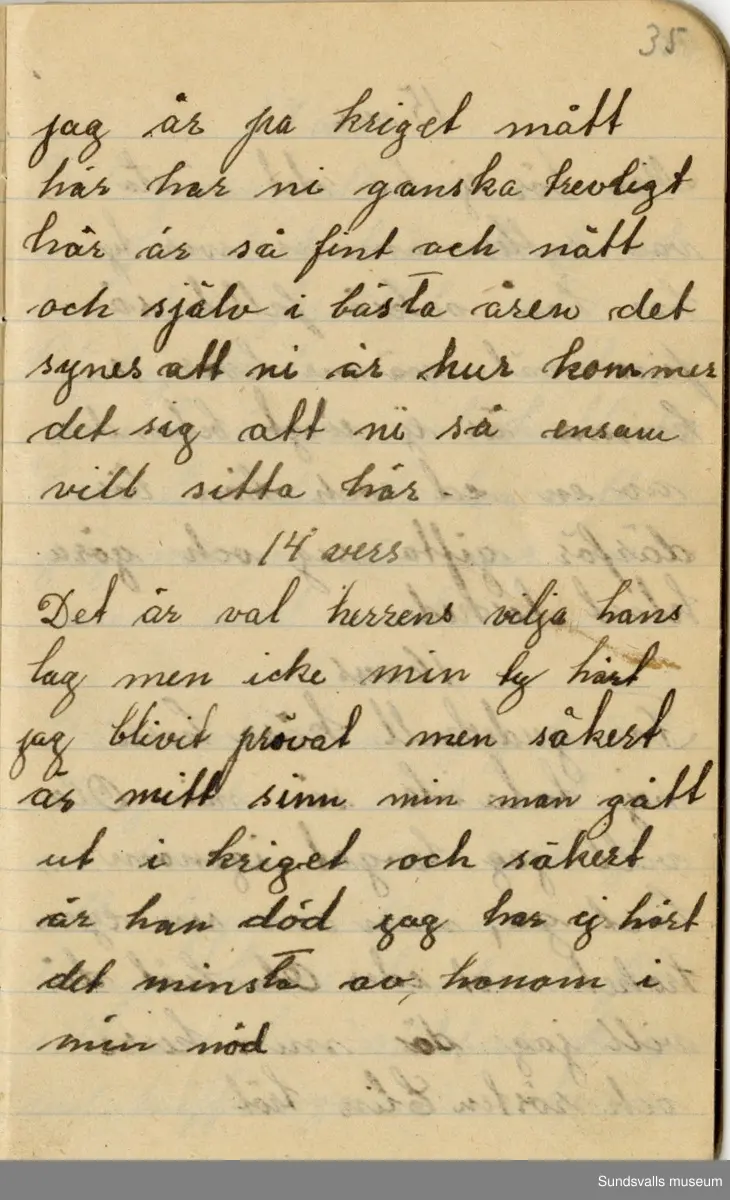 35
jag är pa kriget mått
här har ni ganska trevligt
här är så fint och nätt
och själv i bästa åren det
synes att ni är hur kommer
det sig att ni så ensam
vill sitta här.
14 vers
Det är val herrens vilja hans
lag men icke min ty hårt
jag blivit prövat men säkert
är mitt sinn min man gått
ut i kriget och säkert
är han död jag har ej hört
det minsta av honom i
min nöd
Sundsvalls museum